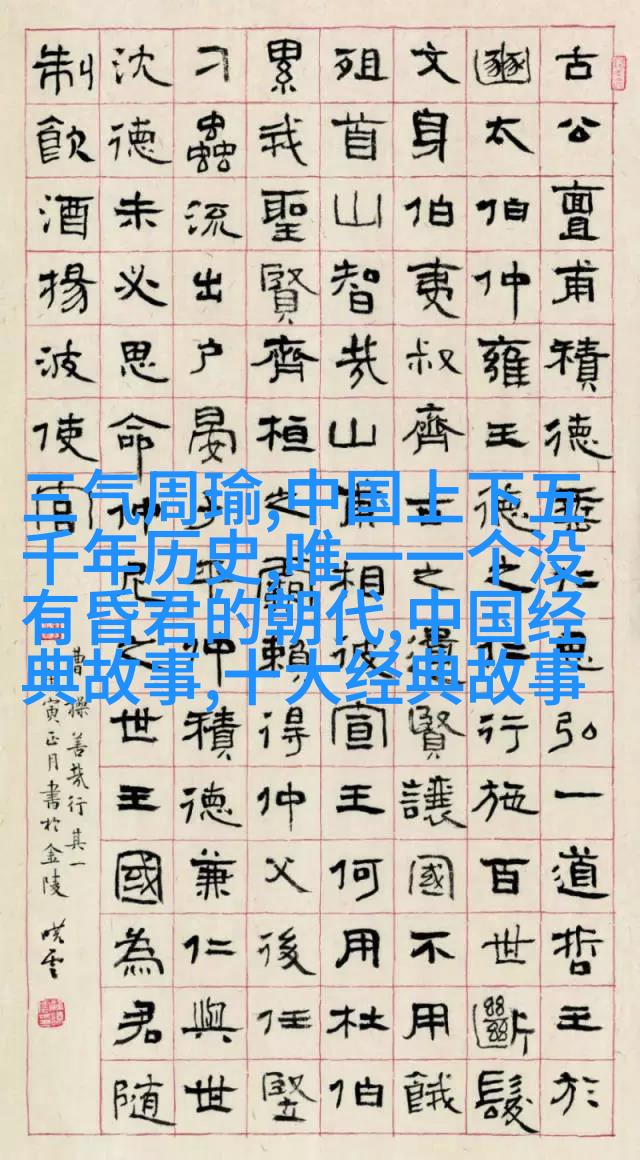 三气周瑜,中国上下五
千年历史,唯一一个没
有昏君的朝代,中国经
典故事,十大经典故事
古公亶甫積德垂仁思弘一道哲王於
豳太伯仲雍王德之仁行施百世斷髮
文身伯夷叔齊古之遺賢讓國不用餓
殂首山智哉山甫相彼宣王何用杜伯
累我聖賢齊桓之霸賴得仲父後任豎
刁蟲流出戶晏子平仲積德兼仁與世
沈德未必思命仲尼之世王國為君隨
制飲酒揚波使官
曹操善哉行其一
寅正月書於金陵